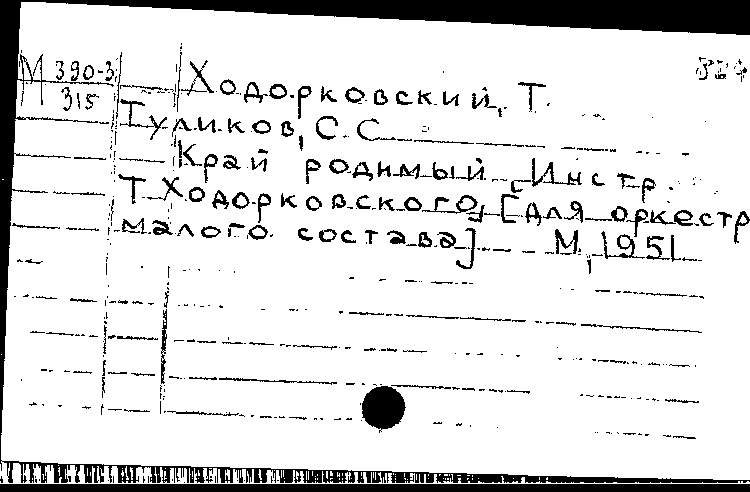 М 390-3
315
Ходорковский, Т.
Туликов, С. С.
Край родимый. Инстр.
Т. Ходорковского, [для оркестр
малого состава] М., 1951